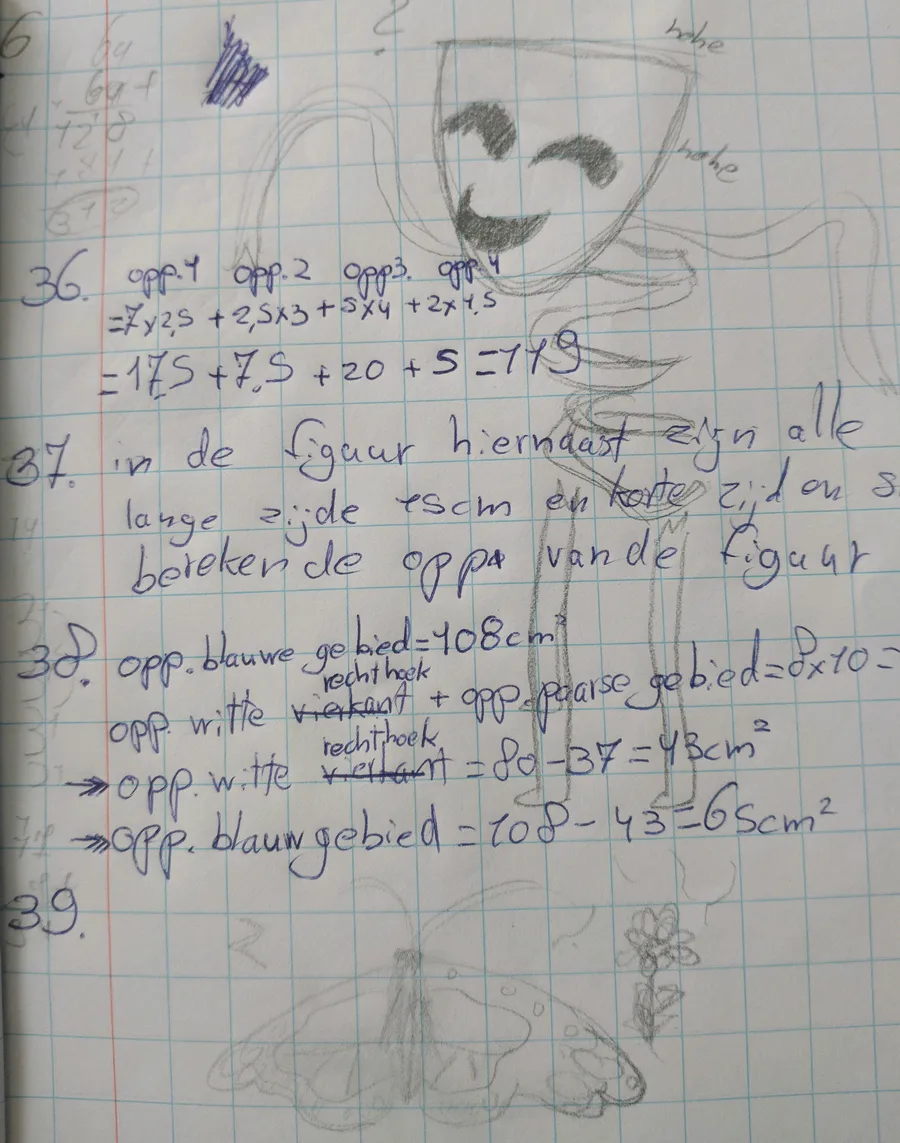 6
64
64 +
128
hohe
hohe
36. opp.1 opp.2 opp3. opp.4
=7x2,5 + 2,5x3 + 5x4 + 2x1,5
=17,5 + 7,5 + 20 + 5 = 119
37. in de figuur hiernaast zijn alle
lange zijde 15cm en korte zijden 5
bereken de opp. van de figuur
38. opp. blauwe gebied = 108cm²
rechthoek
opp. witte vierkant + opp. paarse gebied = 8x10 =
rechthoek
→ opp. witte vierkant = 80 - 37 = 43cm²
→ opp. blauw gebied = 108 - 43 = 65cm²
39.